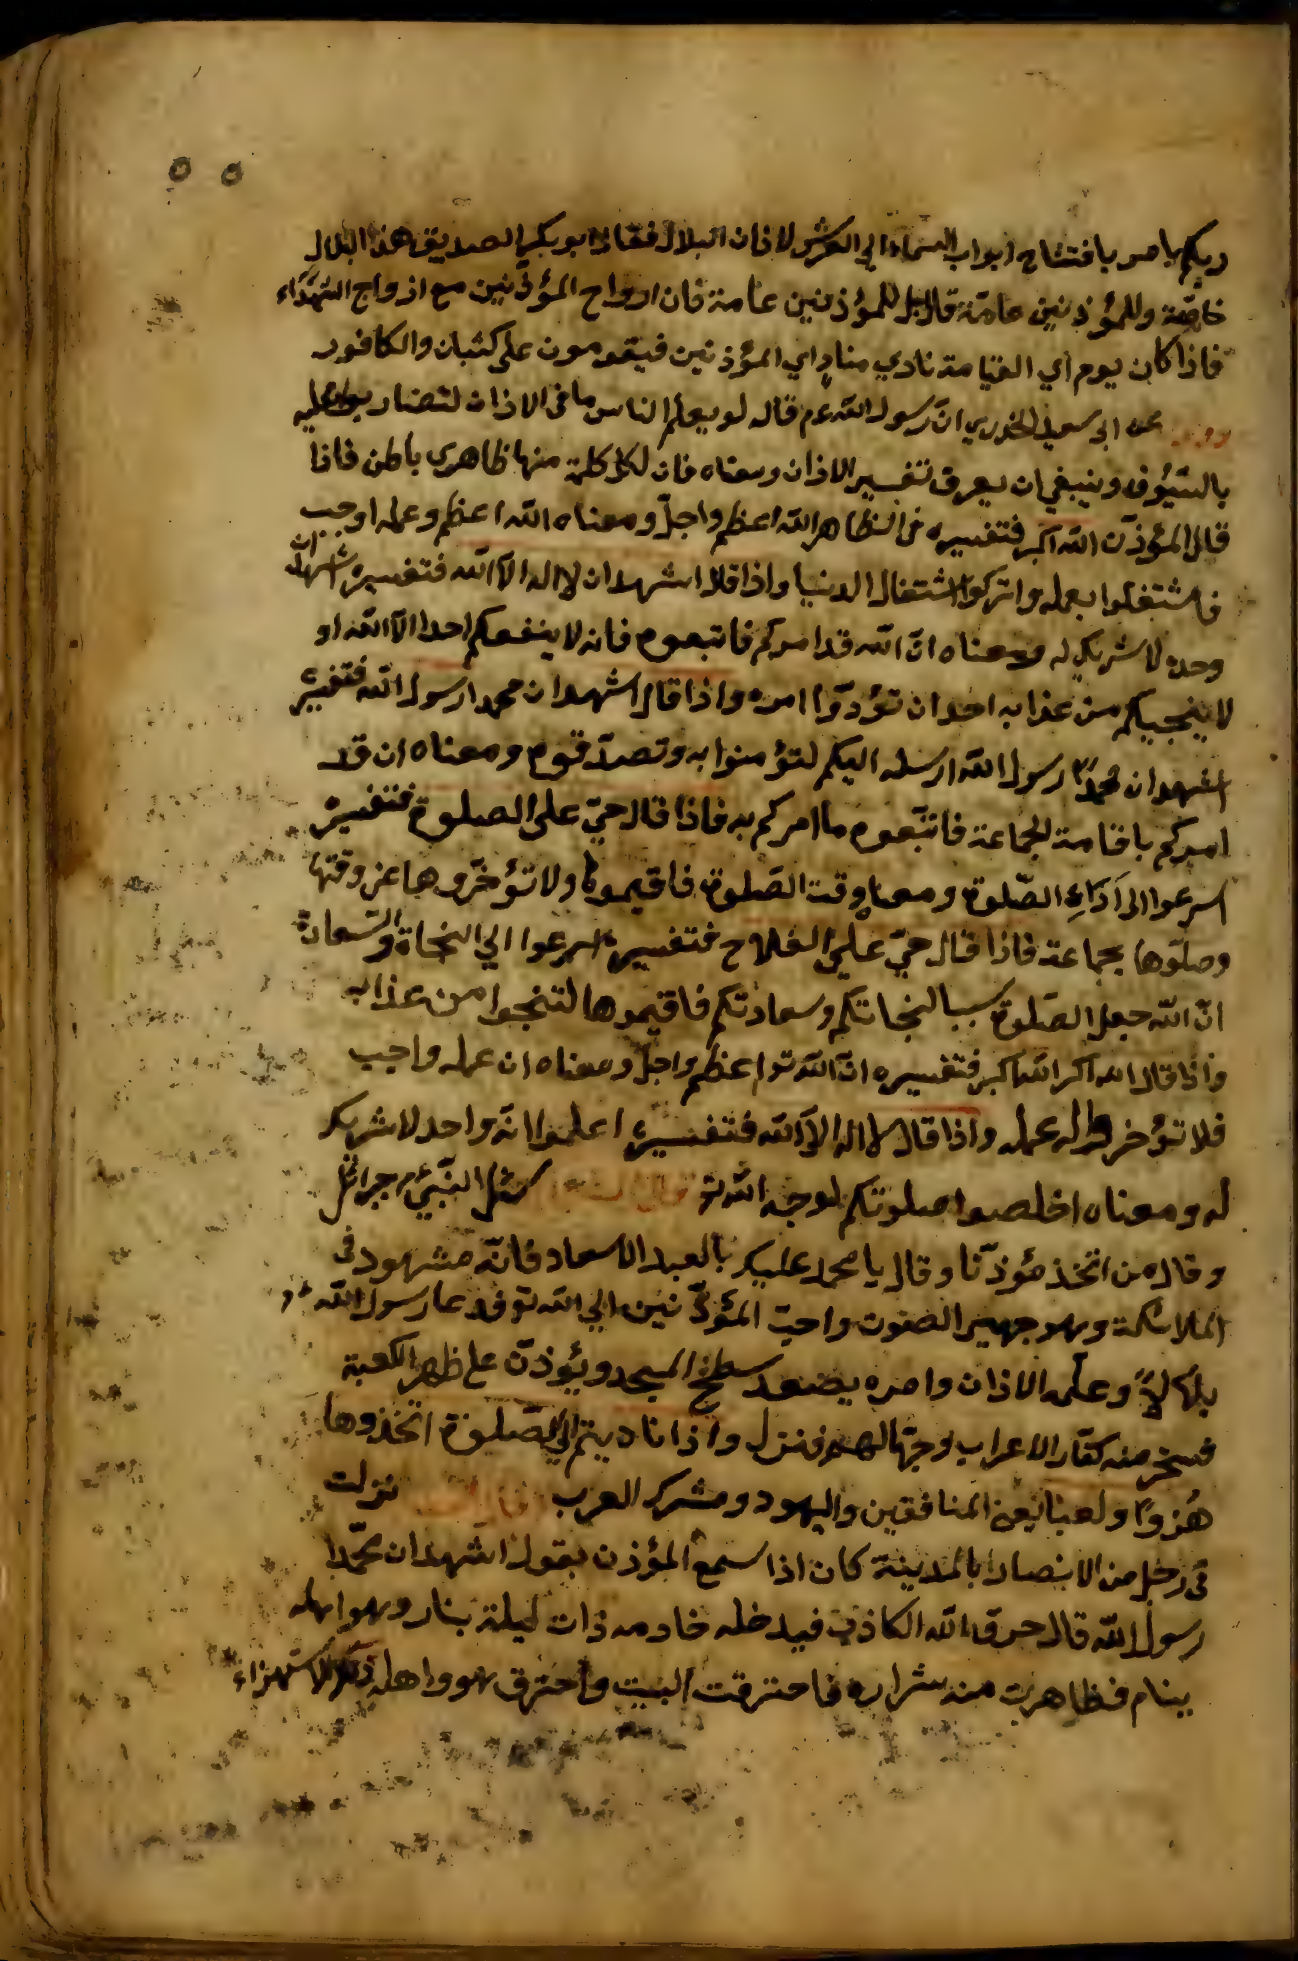 ٥٥
ربكم يامر بافتتاح ابواب السماء الى العرش لاذان البلال فقال ابو بكر الصديق هذا البلال
خاصة وللمؤذنين عامة قال بل للمؤذنين عامة فان ارواح المؤذنين مع ازواج الشهداء
فاذا كان يوم اي القيامة نادي مناد اي المؤذنين فيقومون على كثبان والكافور
عن ابي سعيد الخدري ان رسول الله عم قال لو يعلم الناس ما في الاذان لتضاربوا عليه
بالسيوف وينبغي ان يعرف تفسير الاذان ومعناه فان لكل كلمة منها ظاهري باطن فاذا
قال المؤذن الله اكبر فتفسيره في الظاهر الله اعظم واجل ومعناه الله اعظم وعمله اوجب
فاشتغلوا بعمله واتركوا اشتغال الدنيا واذا قال اشهد ان لا اله الا الله فتفسيره اشهد ان
وحده لا شريك له ومعناه ان الله قد امركم فاتبعوه فانه لا ينفعكم احدا الا الله او
لا ينجيكم من عذابه احد ان تؤدوا امره واذا قال اشهد ان محمدا رسول الله فتفسيره
اشهد ان محمدا رسول الله ارسله اليكم لتؤمنوا به وتصدقوه ومعناه ان قد
امركم باقامة الجماعة فاتبعوه ما امركم به فاذا قال حي على الصلوة فتفسيره
اسرعوا الى اداء الصلوة ومعناه وقت الصلوة فاقيموها ولا تؤخروها عن وقتها
وصلوها بجماعة فاذا قال حي على الفلاح فتفسيره اسرعوا الي النجاة والسعادة
ان الله جعل الصلوة سببا لنجاتكم وسعادتكم فاقيموها لتنجوا من عذابه
واذا قال الله اكبر الله اكبر فتفسيره ان الله تو اعظم واجل ومعناه ان عمله واجب
فلا تؤخر عمله واذا قال لا اله الا الله فتفسيره اعلموا انه واحد لا شريك
له ومعناه اخلصوا صلوتكم لوجه الله تو النبي جبرائل
وقال من اتخذ مؤذنا وقال يا محمد عليك بالعبد الاسعاد فانه مشهود في
الملائكة وهو جهير الصوت واحب المؤذنين الي الله تو فدعا رسول الله
بلالا وعلمه الاذان وامره يصعد سطح المسجد ويؤذن على ظهر الكعبة
فسخر منه كفار الاعراب وجهالهم فنزل واذا ناديتم الى الصلوة اتخذوها
هزوا ولعبا يعني المنافقين واليهود ومشرك العرب نزلت
في رجل من الانصار بالمدينة كان اذا سمع المؤذن يقول اشهد ان محمدا
رسول الله قال حرق الله الكاذب فيدخله خادمه ذات ليلة بنار وهو اهله
ينام فظاهرت منه شراره فاحترقت البيت واحترق هو واهله لاستهزاء